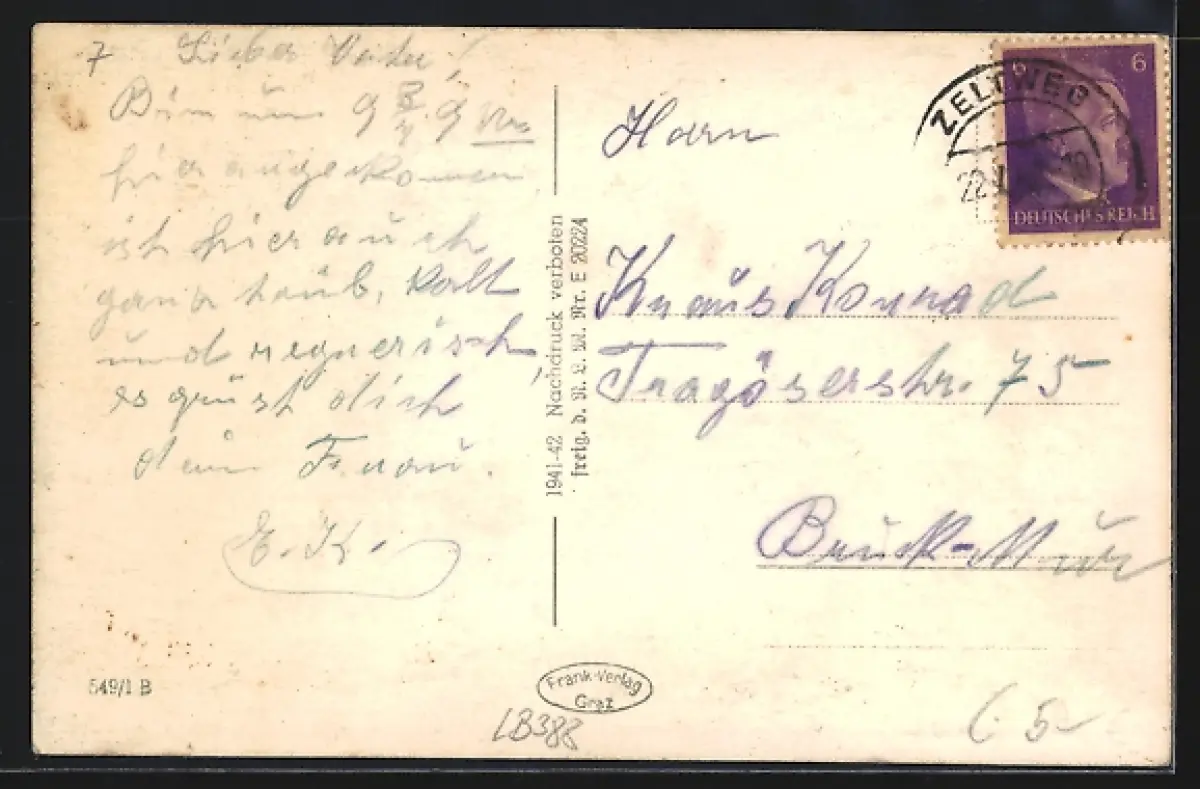 7 Lieber Vater!
Bin um 9 Uhr
hier angekommen,
ist hier auch
ganz trüb, kalt
und regnerisch,
es grüst dich
dein Franzi.
E. K.
549/1 B
1941-42 Nachdruck verboten
freig. d. R. L. M. Nr. E 20224
Frank-Verlag
Graz
LB388
6 6
DEUTSCHES REICH
ZELTWEG
22
Herrn
Knaus Konrad
Tragöserstr. 75
Bruck-Mur
5-